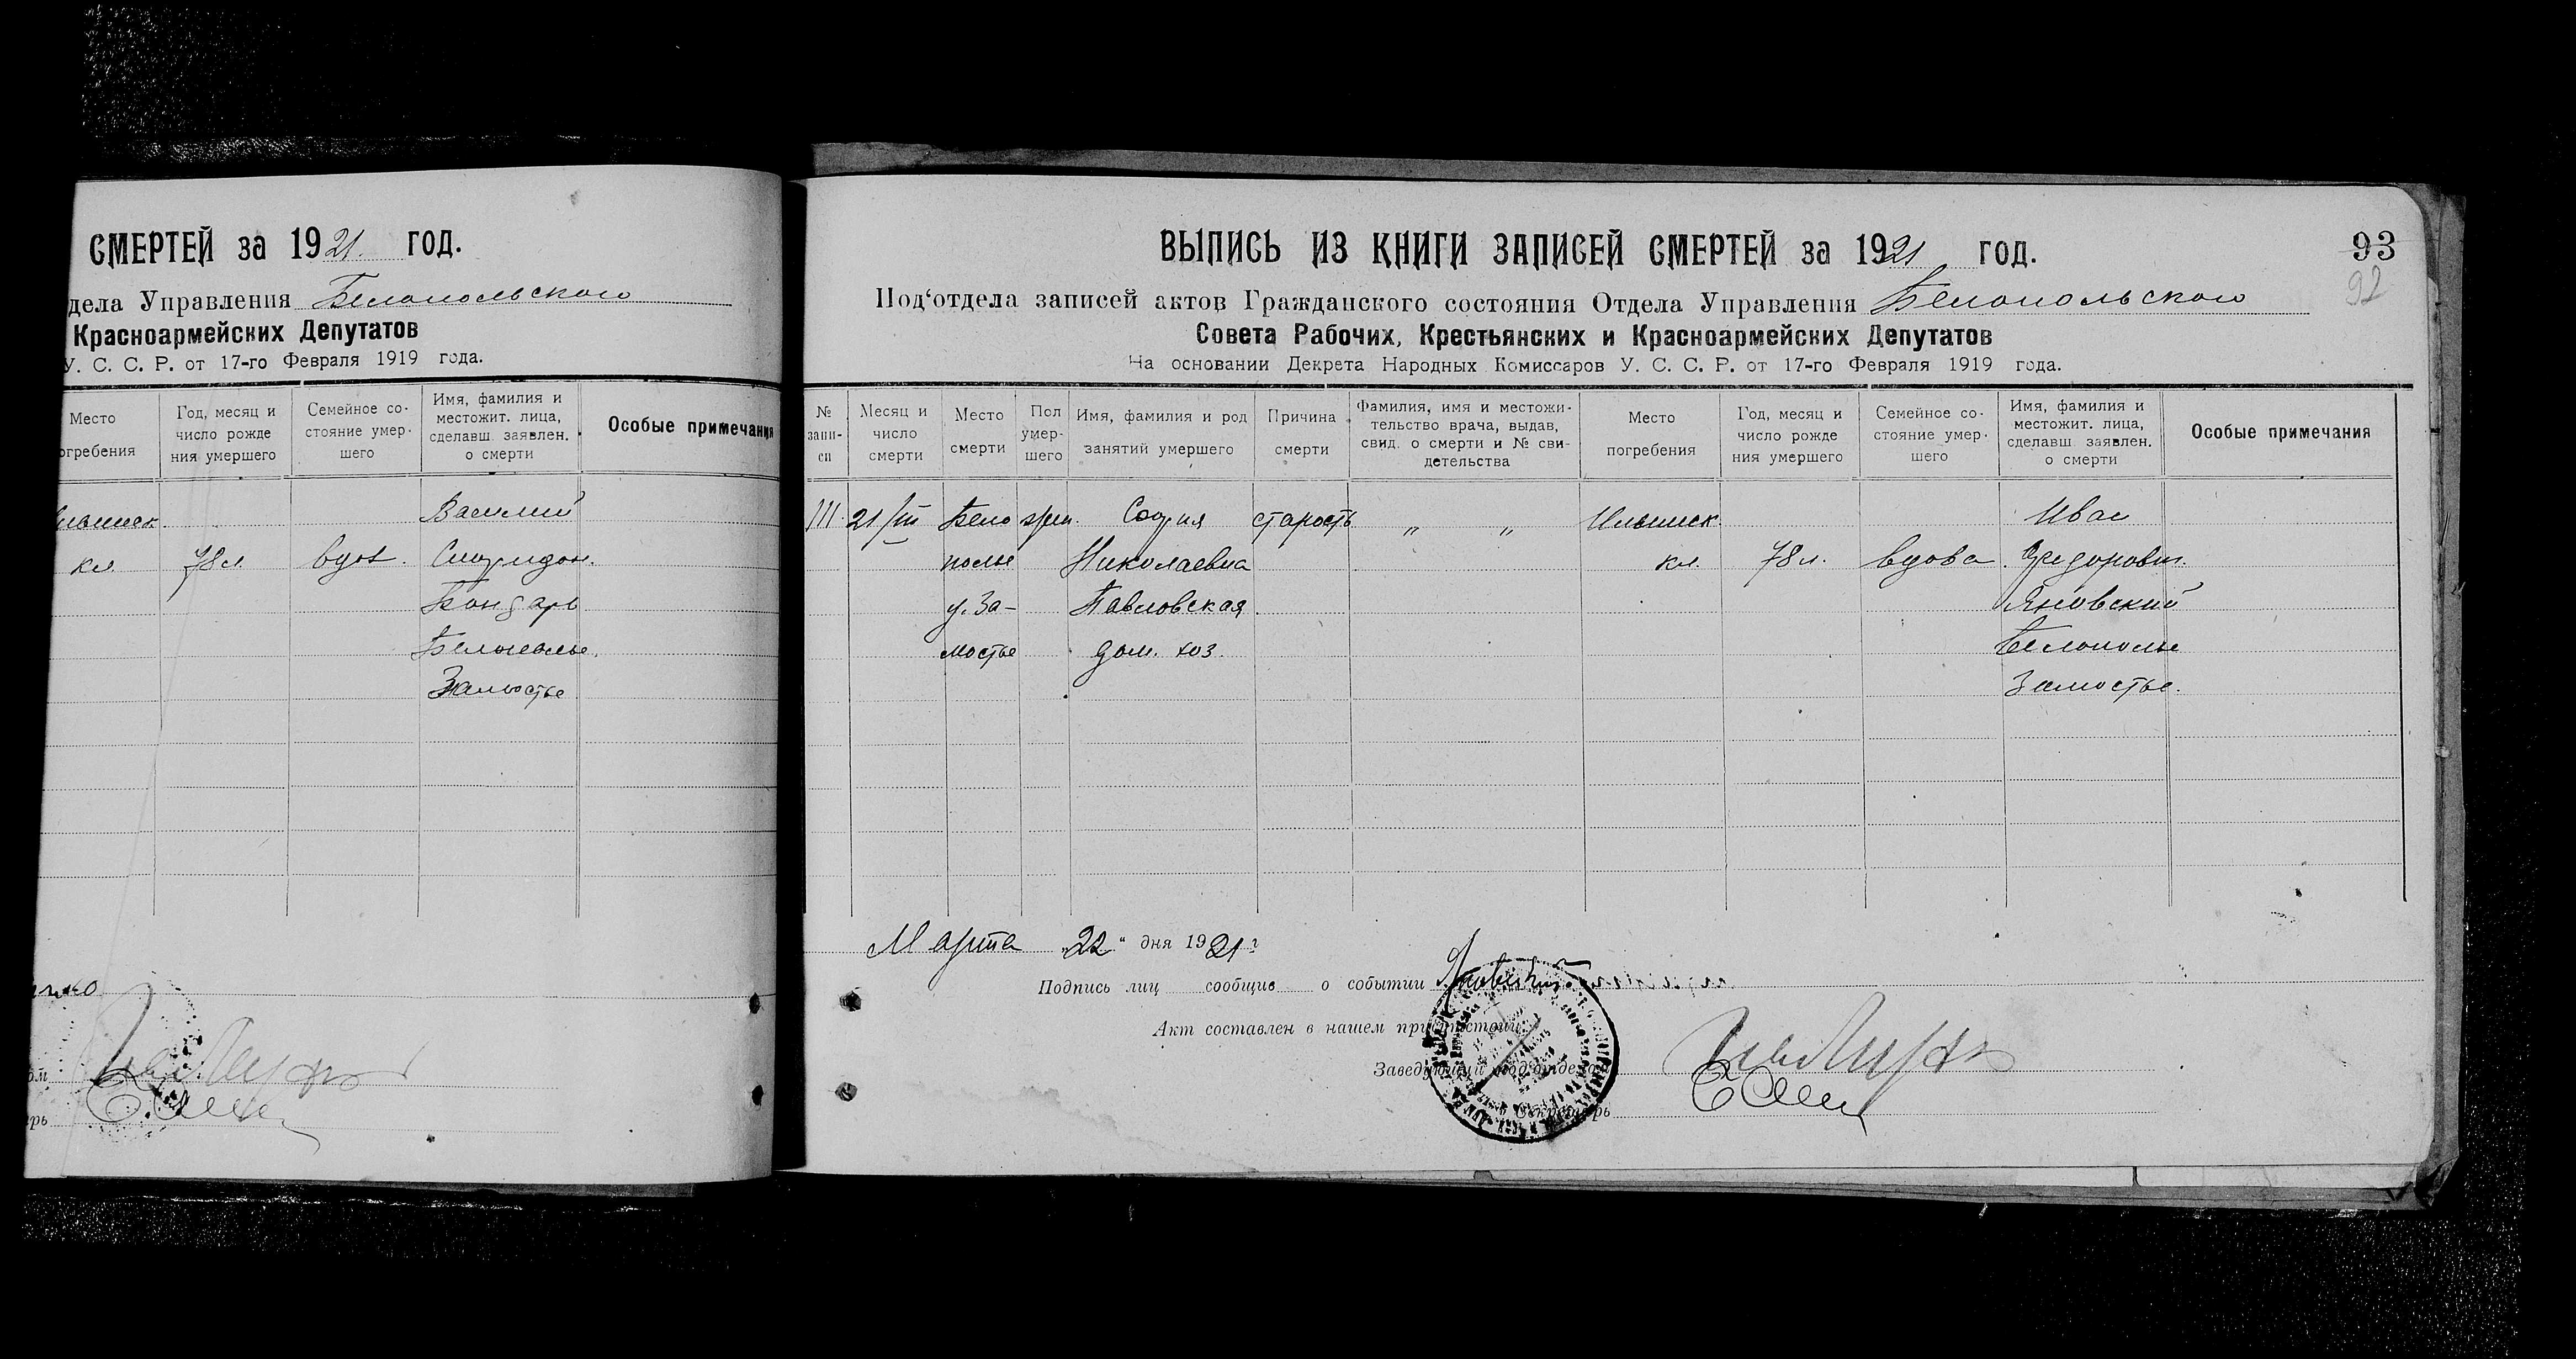 СМЕРТЕЙ за 1921. год.
дела Управления Белопольского
Красноармейских Депутатов
У. С. С. Р. от 17-го Февраля 1919 года.
Место
огребения
Год, месяц и
число рожде
ния умершего
Семейное со-
стояние умер-
шего
Имя, фамилия и
местожит. лица,
сделавш. заявлен.
о смерти
Особые примечания
Василий
кл. 78 л. вдов. Спиридон.
Бондарь
Белополье.
Замостье
ВЫПИСЬ ИЗ КНИГИ ЗАПИСЕЙ СМЕРТЕЙ за 1921 год.
93
92
Под‘отдела записей актов Гражданского состояния Отдела Управления Белопольского
Совета Рабочих, Крестьянских и Красноармейских Депутатов
На основании Декрета Народных Комиссаров У. С. С. Р. от 17-го Февраля 1919 года.
№
запи-
си
Месяц и
число
смерти
Место
смерти
Пол
умер-
шего
Имя, фамилия и род
занятий умершего
Причина
смерти
Фамилия, имя и местожи-
тельство врача, выдав,
свид. о смерти и № сви-
детельства
Место
погребения
Год, месяц и
число рожде
ния умершего
Семейное со-
стояние умер-
шего
Имя, фамилия и
местожит. лица,
сделавш. заявлен.
о смерти
Особые примечания
111. 21/III Бело жен. София старость „ „ Ильинск. Иван
полье Николаевна кл. 78 л. вдова Федорович.
у. За- Павловская Яновский
мостье дом. хоз. Белополье
Замостье.
Марта „22“ дня 1921 г
Подпись лиц сообщив о событии Яновский
Акт составлен в нашем присутствии:
Заведующий под‘отделом
Секретарь